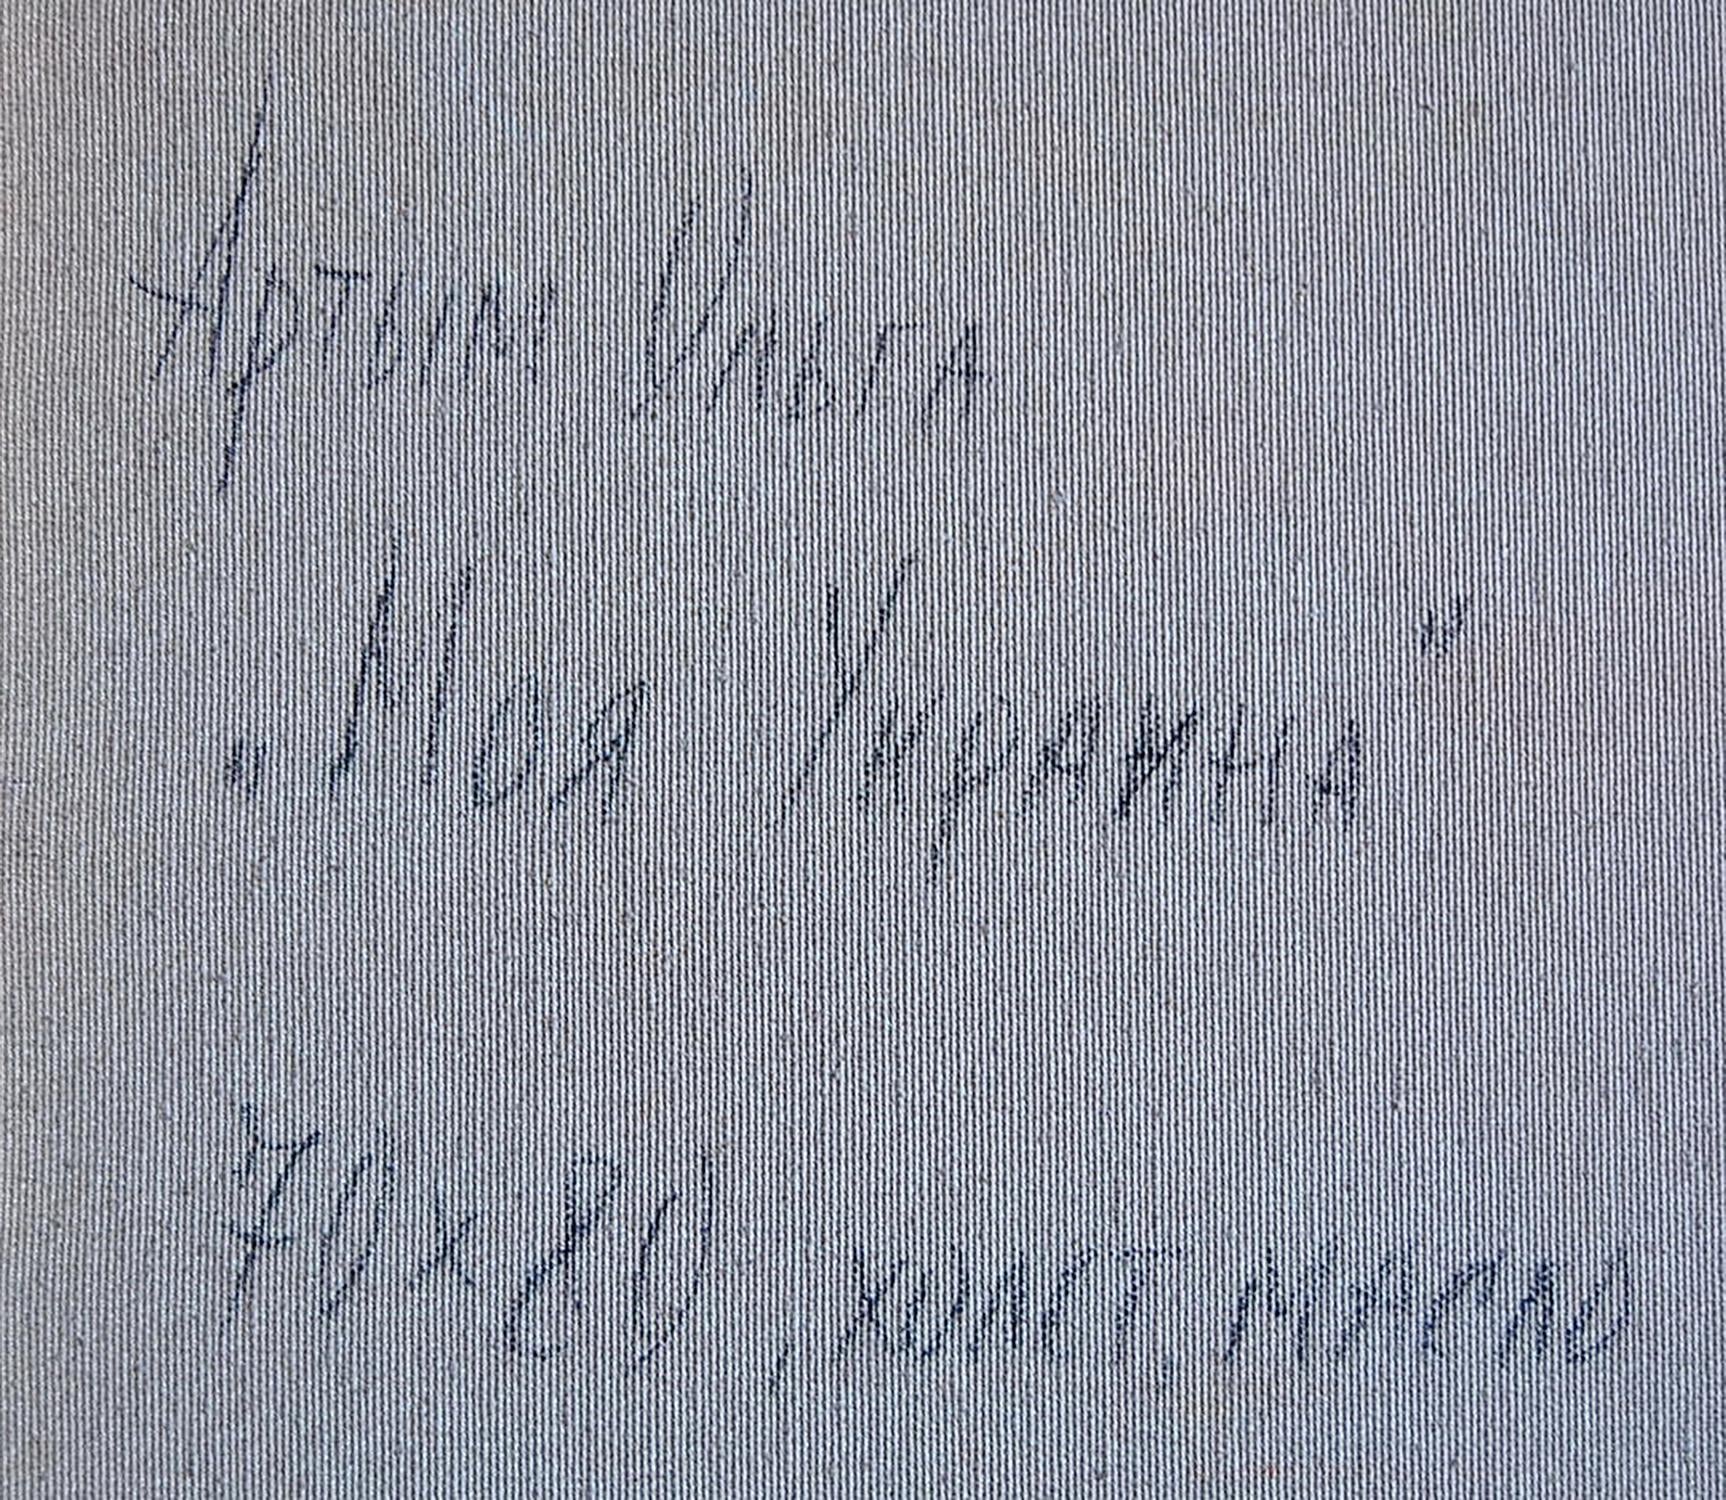 Артым Ольга
„Моя Украина"
70x80, холст, масло